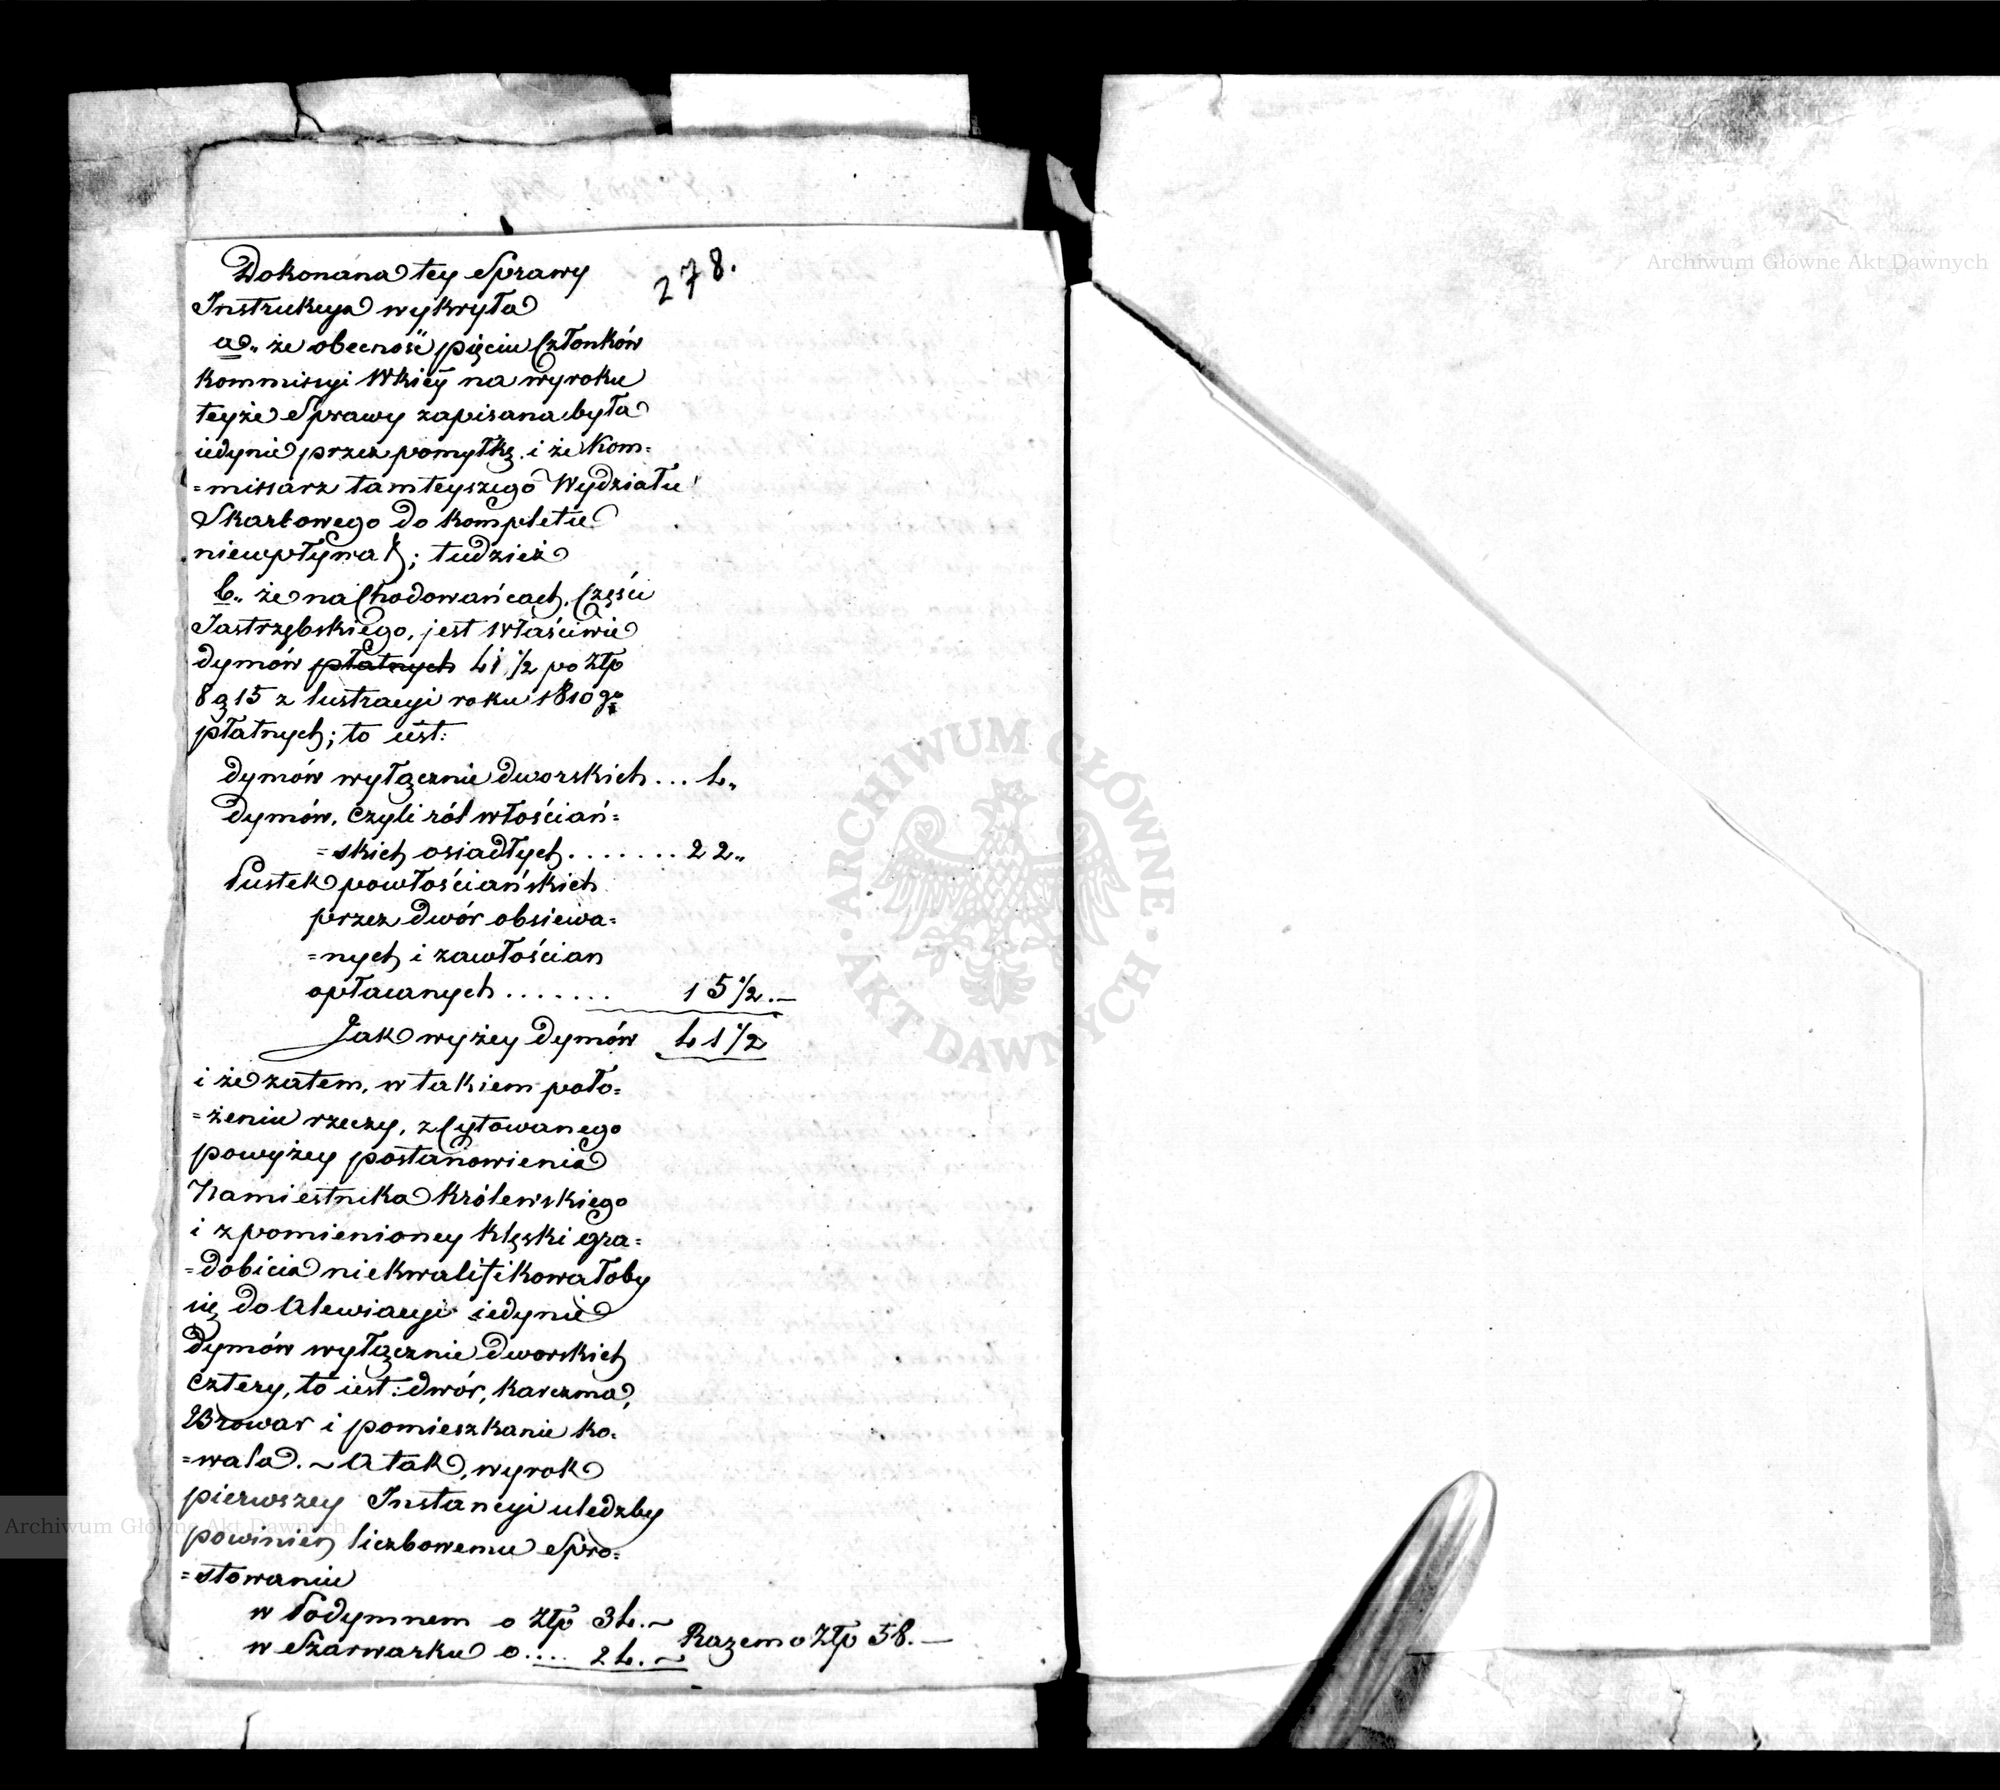 278.
Dokonana tey Sprawy
Instrukcya wykryła
a„ że obecność pięciu Członków
Kommissyi Wkiey na wyroku
teyże Sprawy zapisana była
iedynie przez pomyłkę. i że Kom=
=missarz tamteyszego Wydziału
Skarbowego do kompletu
niewpływał; tudzież
b„ że na Chodowańcach, Części
Jastrzębskiego, jest właściwie
dymów płatnych 41 1/2 po Złp
8 g 15 z lustracyi roku 1810go
płatnych; to iest:
dymów wyłącznie dworskich... 4„
dymów, czyli ról włościań=
=skich osiadłych....... 22„
Pustek powłościańskich
przez dwór obsiewa=
=nych i zawłościan
opłacanych....... 15 1/2.—
Jak wyżey dymów 41 1/2
i że zatem, w takiem poło=
=żeniu rzeczy, z Cytowanego
powyżey postanowienia
Namiestnika Królewskiego
i z pomienioney klęski gra=
=dobicia niekwalifikowałoby
się do Alewiacyi iedynie
dymów wyłącznie dworskich
cztery, to iest: dwór, karczma,
Browar i pomieszkanie ko=
=wala. ~ A tak, wyrok
pierwszey Instancyi uledzby
powinien liczbowemu Spro=
=stowaniu
w Podymnem o Złp 34.~
w Szarwarku o.... 24.~ Razem o Złp 58.—
ARCHIWUM GŁÓWNE · AKT DAWNYCH ·
Archiwum Główne Akt Dawnych
Archiwum Główne Akt Dawnych